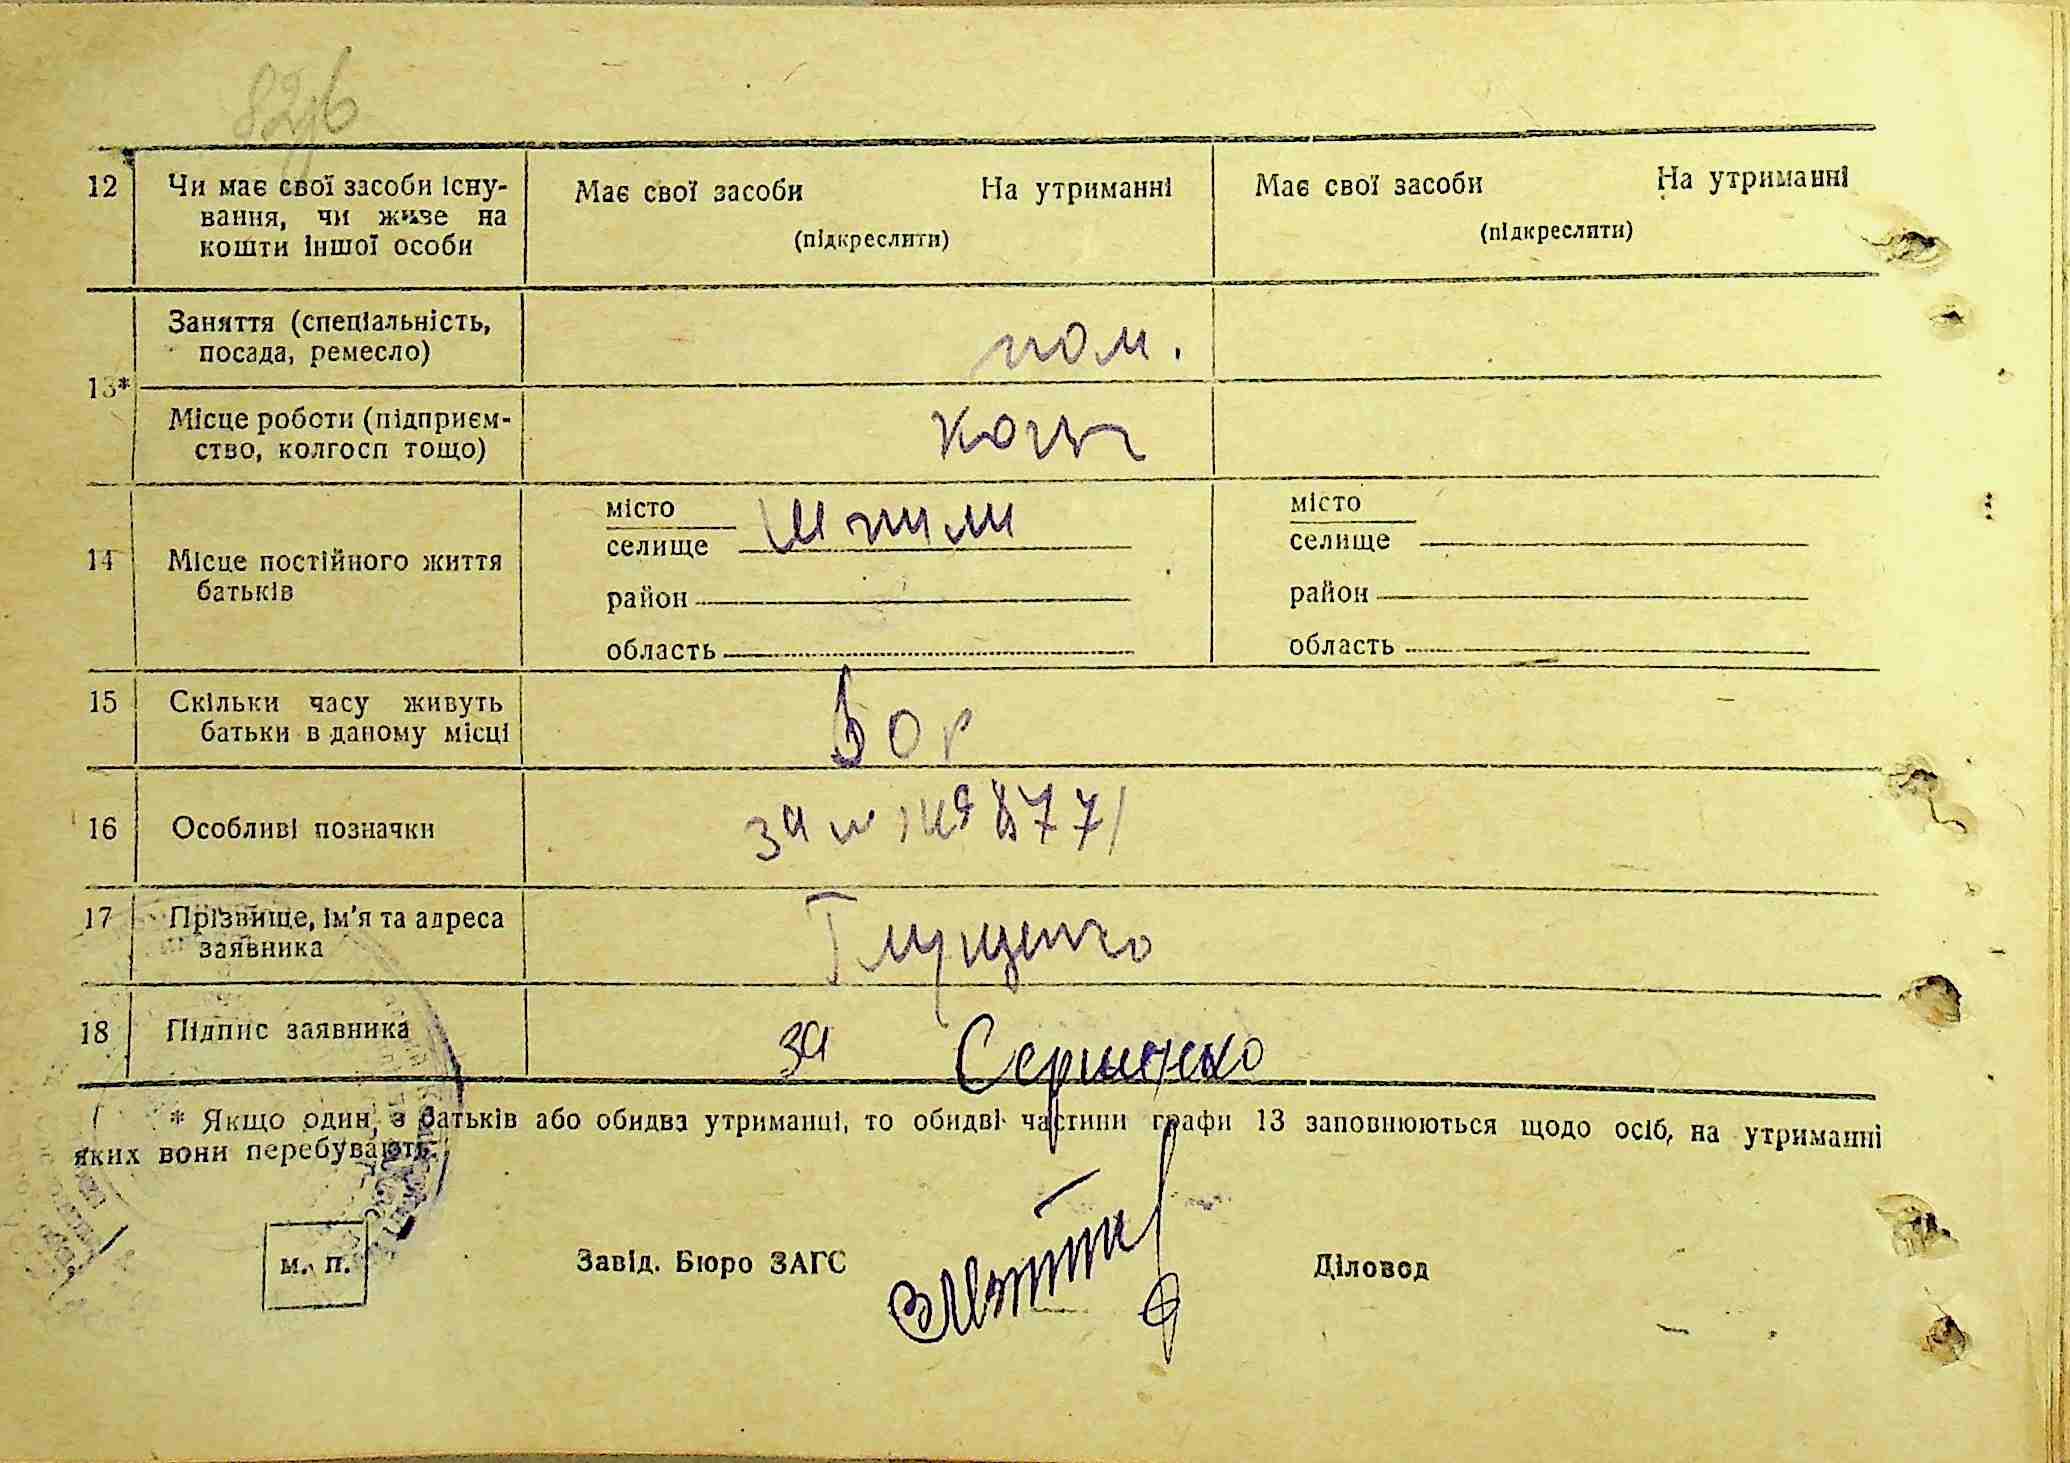 12 Чи має свої засоби існу-
вання, чи живе на
кошти іншої особи
Має свої засоби На утриманні
(підкреслити)
Має свої засоби На утриманні
(підкреслити)
13*
Заняття (спеціальність,
посада, ремесло)
Місце роботи (підприєм-
ство, колгосп тощо)
14 Місце постійного життя
батьків
місто
селище
район
область
місто
селище
район
область
15 Скільки часу живуть
батьки в даному місці
16 Особливі позначки
17 Прізвище, ім'я та адреса
заявника
Глущенко
18 Підпис заявника
за
* Якщо один з батьків або обидва утриманці, то обидві частини графи 13 заповнюються щодо осіб, на утриманні
яких вони перебувають.
м. п. Завід. Бюро ЗАГС Діловод